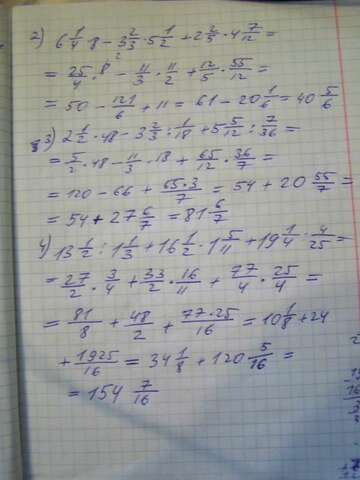 2) 6 1/4 · 8 - 3 2/3 · 5 1/2 + 2 2/5 · 4 7/12 =
= 25/4 · 8² - 11/3 · 11/2 + 12/5 · 55/12 =
= 50 - 121/6 + 11 = 61 - 20 1/6 = 40 5/6
3) 2 1/2 · 48 - 3 2/3 : 1/18 + 5 5/12 : 7/36 =
= 5/2 · 48 - 11/3 · 18 + 65/12 · 36/7 =
= 120 - 66 + 65·3/7 = 54 + 20 55/7 =
= 54 + 27 6/7 = 81 6/7
4) 13 1/2 : 1 1/3 + 16 1/2 · 1 5/11 + 19 1/4 : 4/25 =
= 27/2 · 3/4 + 33/2 · 16/11 + 77/4 · 25/4 =
= 81/8 + 48/2 + 77·25/16 = 10 1/8 + 24
+ 1925/16 = 34 1/8 + 120 5/16 =
= 154 7/16